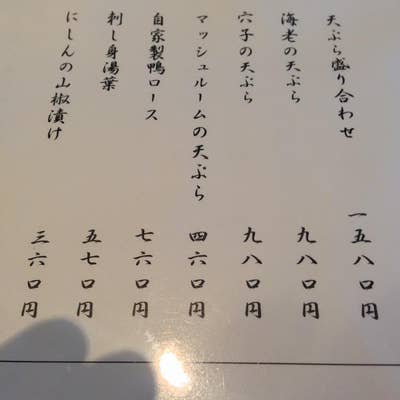 天ぷら盛り合わせ 一五八〇円
海老の天ぷら 九八〇円
穴子の天ぷら 九八〇円
マッシュルームの天ぷら 四六〇円
自家製鴨ロース 七六〇円
刺し身湯葉 五七〇円
にしんの山椒漬け 三六〇円